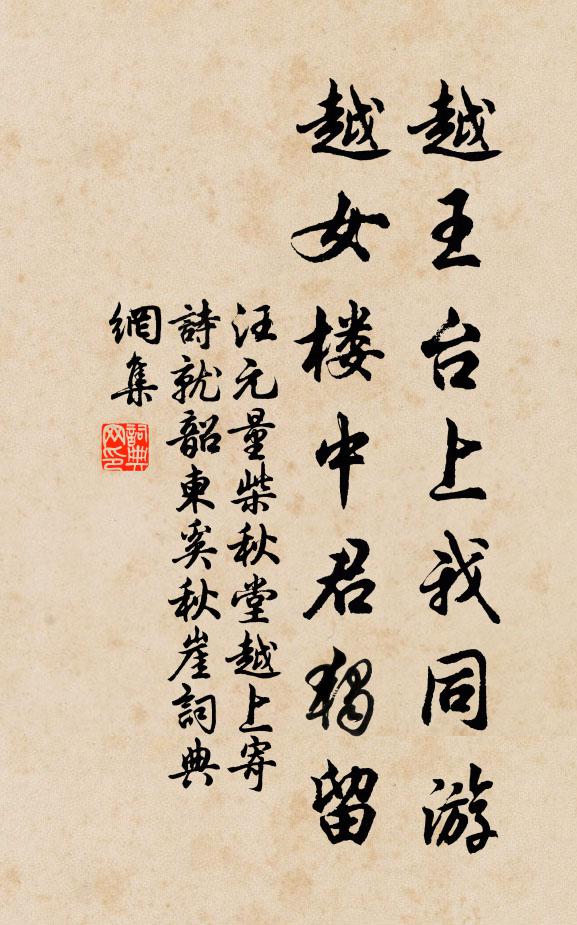 越王台上我同游
越女楼中君独留
汪元量柴秋堂越上寄
詩就韶東奚秋崖詞典
網集
詞典
网印